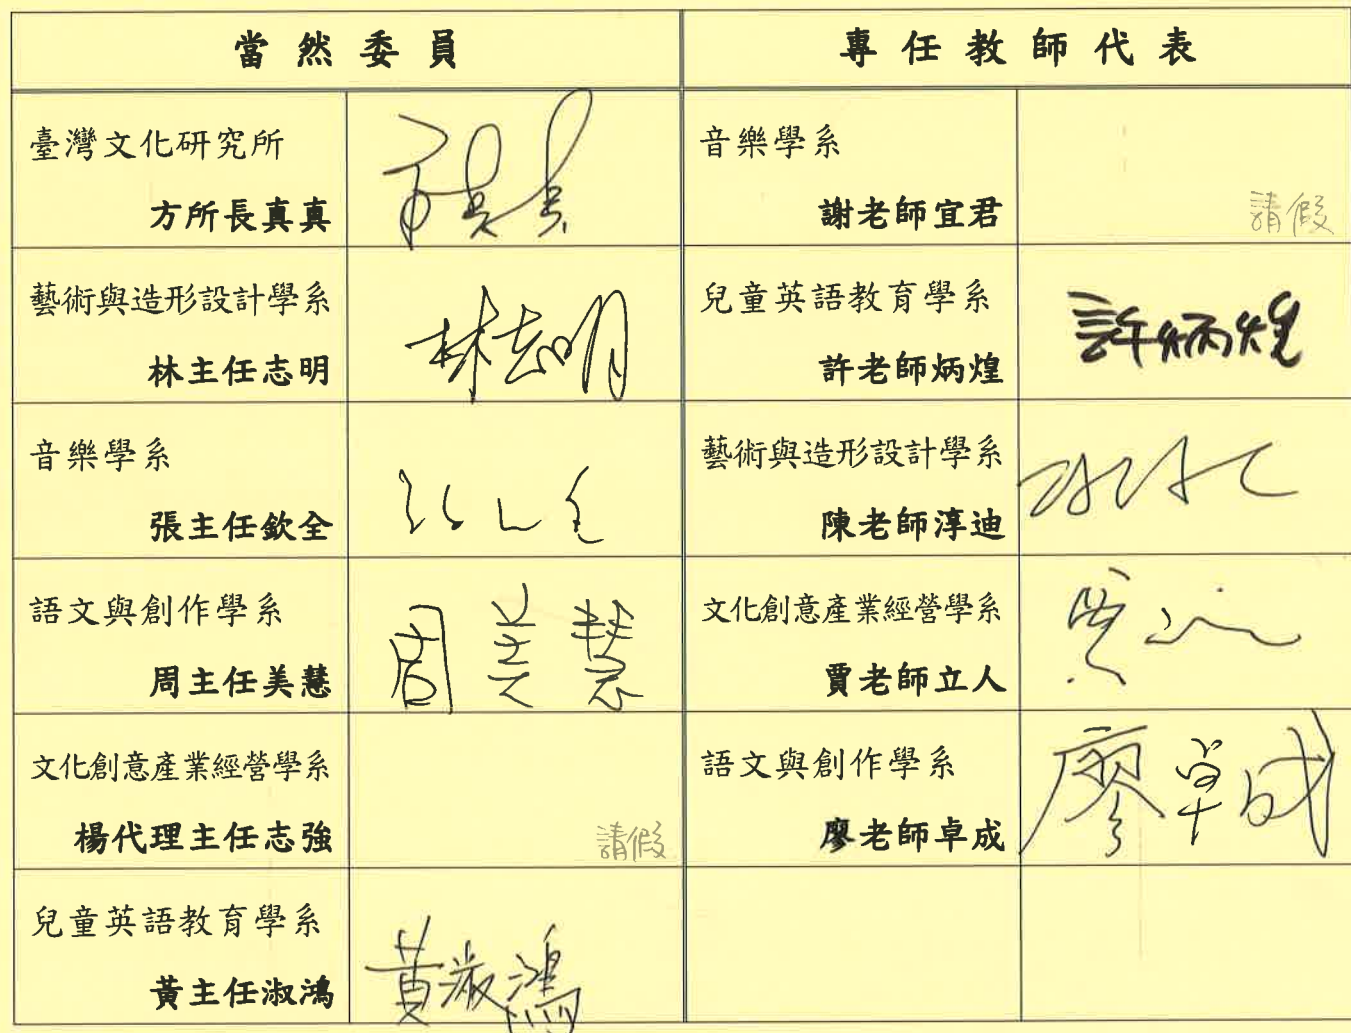 當然委員
專任教師代表
臺灣文化研究所
方所長真真
方真真
音樂學系
謝老師宜君
請假
藝術與造形設計學系
林主任志明
林志明
兒童英語教育學系
許老師炳煌
許炳煌
音樂學系
張主任欽全
藝術與造形設計學系
陳老師淳迪
語文與創作學系
周主任美慧
周美慧
文化創意產業經營學系
賈老師立人
文化創意產業經營學系
楊代理主任志強
請假
語文與創作學系
廖老師卓成
廖卓成
兒童英語教育學系
黃主任淑鴻
黃淑鴻